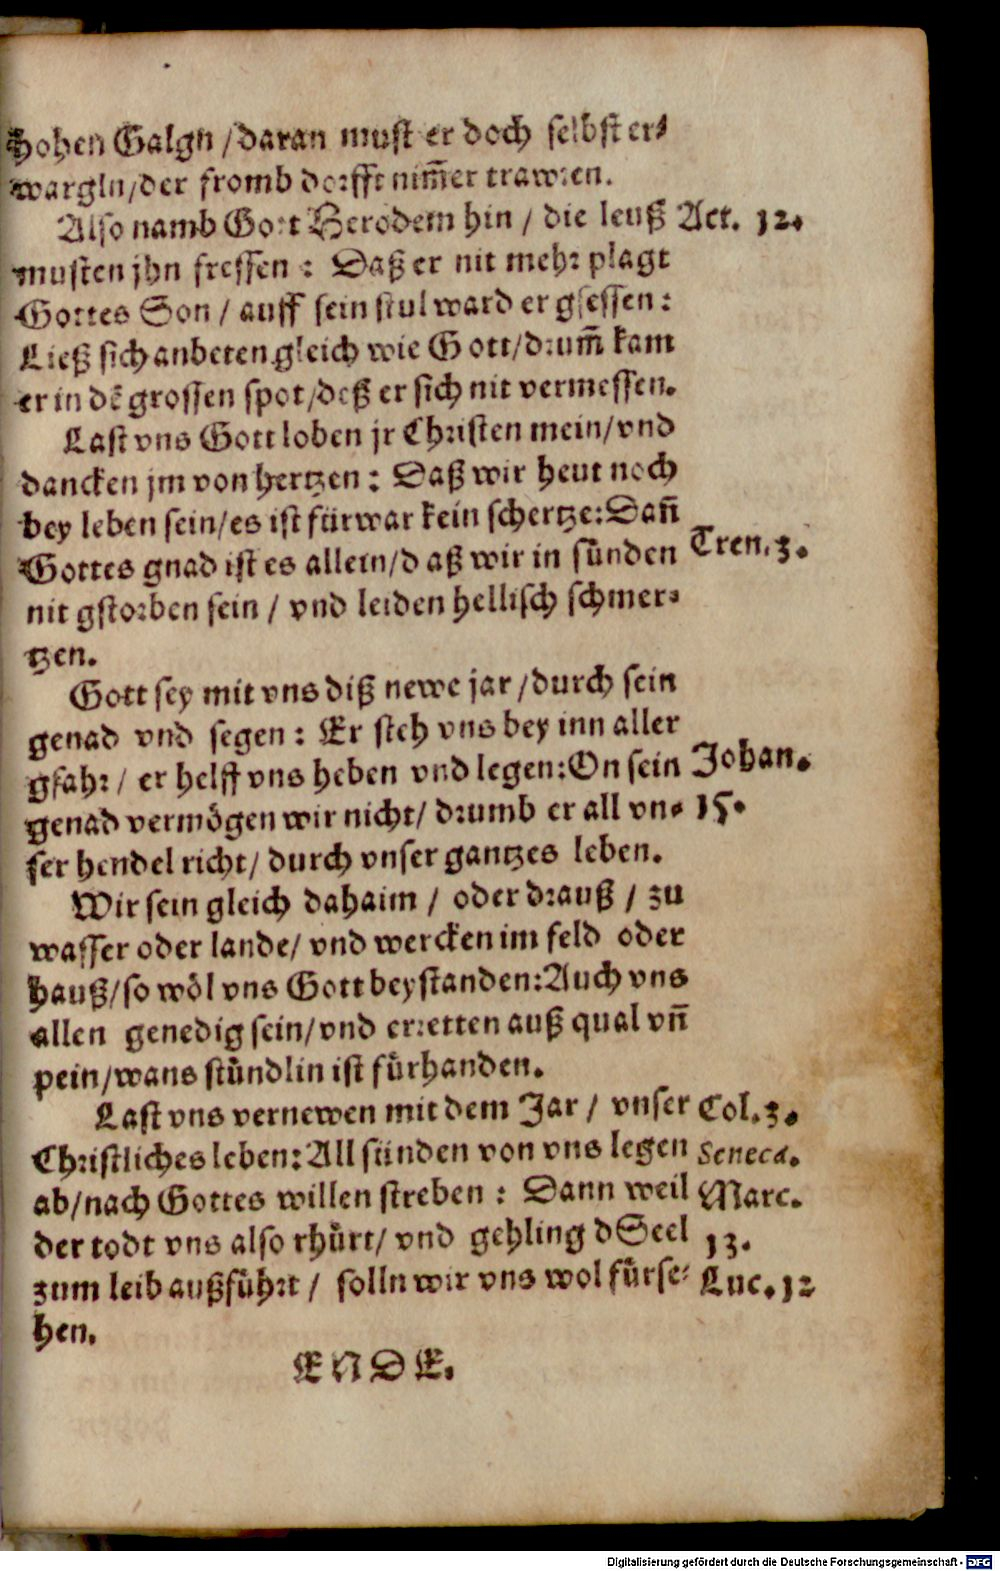 hohen Galgn / daran must er doch selbst er⸗
wargln / der fromb dorfft nim̄er trawren.
Also namb Gott Herodem hin / die leuß Act. 12.
musten jhn fressen : Daß er nit mehr plagt
Gottes Son / auff sein stul ward er gsessen :
Ließ sich anbeten gleich wie Gott / drum̄ kam
er in dē grossen spot / deß er sich nit vermessen.
Last vns Gott loben jr Christen mein / vnd
dancken jm von hertzen : Daß wir heut noch
bey leben sein / es ist fürwar kein schertze : Dañ
Gottes gnad ist es allein / daß wir in sünden Tren. 3.
nit gstorben sein / vnd leiden hellisch schmer⸗
tzen.
Gott sey mit vns diß newe jar / durch sein
genad vnd segen : Er steh vns bey inn aller
gfahr / er helff vns heben vnd legen : On sein Johan.
genad vermögen wir nicht / drumb er all vn⸗ 15.
ser hendel richt / durch vnser gantzes leben.
Wir sein gleich dahaim / oder drauß / zu
wasser oder lande / vnd wercken im feld oder
hauß / so wöl vns Gott beystanden : Auch vns
allen genedig sein / vnd erretten auß qual vñ
pein / wans stündlin ist fürhanden.
Last vns vernewen mit dem Jar / vnser Col. 3.
Christliches leben : All sünden von vns legen Seneca.
ab / nach Gottes willen streben : Dann weil Marc.
der todt vns also rhürt / vnd gehling dSeel 13.
zum leib außführt / solln wir vns wol fürse⸗ Luc. 12
hen.
ENDE.
Digitalisierung gefördert durch die Deutsche Forschungsgemeinschaft - DFG